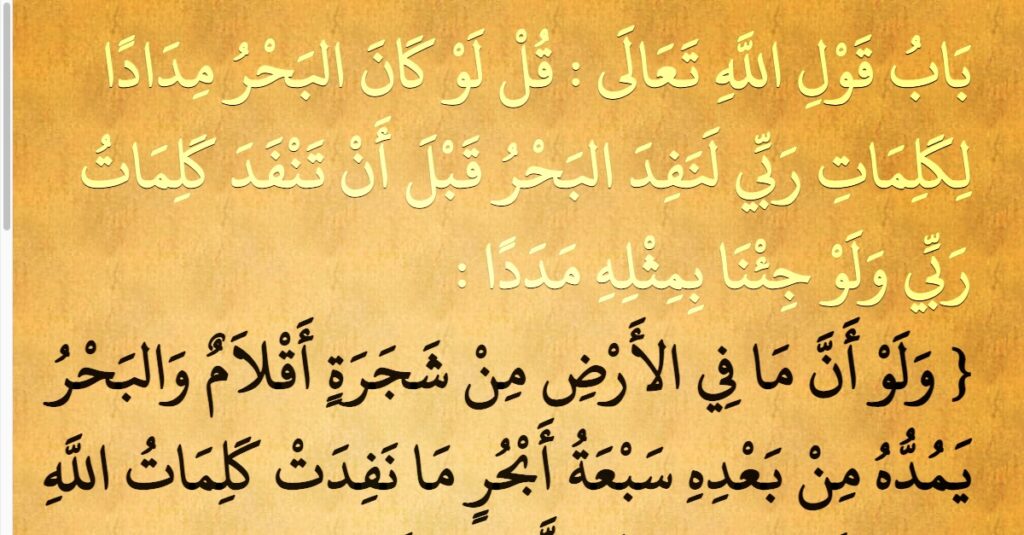 بَابُ قَوْلِ اللَّهِ تَعَالَى : قُلْ لَوْ كَانَ البَحْرُ مِدَادًا
لِكَلِمَاتِ رَبِّي لَنَفِدَ البَحْرُ قَبْلَ أَنْ تَنْفَدَ كَلِمَاتُ
رَبِّي وَلَوْ جِئْنَا بِمِثْلِهِ مَدَدًا :
{ وَلَوْ أَنَّ مَا فِي الأَرْضِ مِنْ شَجَرَةٍ أَقْلاَمٌ وَالبَحْرُ
يَمُدُّهُ مِنْ بَعْدِهِ سَبْعَةُ أَبْحُرٍ مَا نَفِدَتْ كَلِمَاتُ اللَّهِ